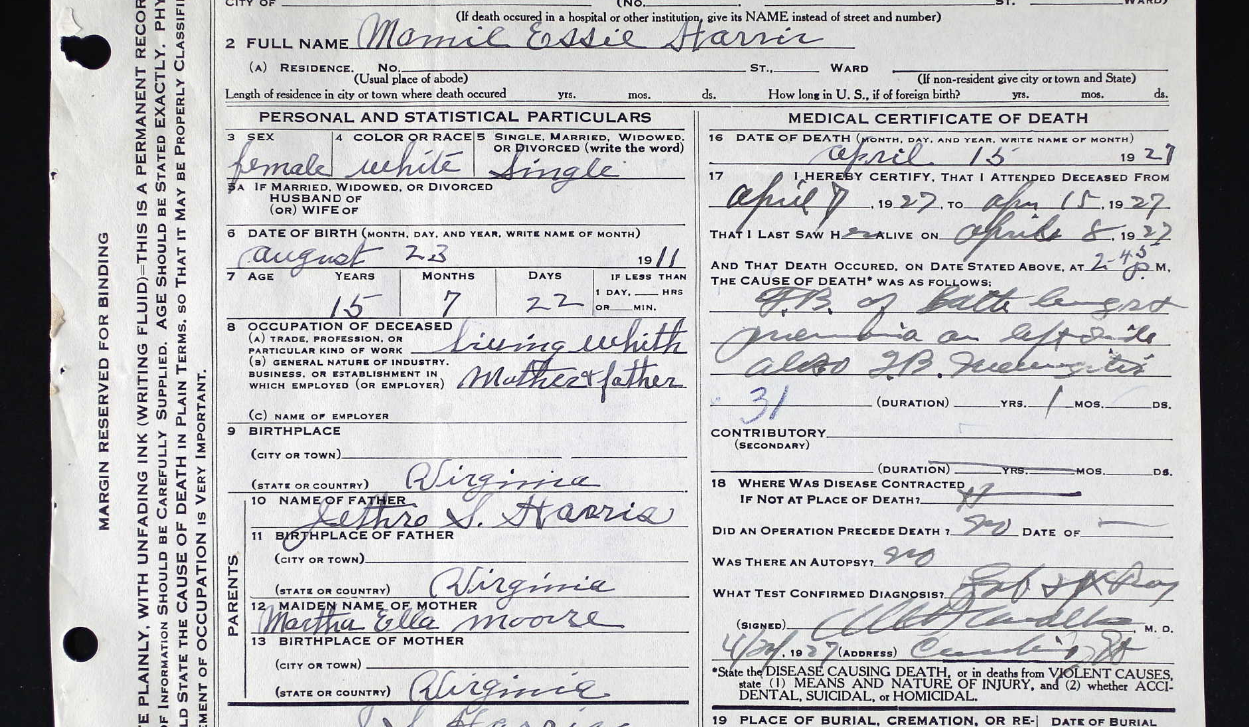 CITY OF (NO. ST. WARD)
(If death occured in a hospital or other institution, give its NAME instead of street and number)
2 FULL NAME Mamie Essie Harris
(A) RESIDENCE. NO. ST., WARD
(Usual place of abode) (If non-resident give city or town and State)
Length of residence in city or town where death occured yrs. mos. ds. How long in U. S., if of foreign birth? yrs. mos. ds.
PERSONAL AND STATISTICAL PARTICULARS
3 SEX 4 COLOR OR RACE 5 SINGLE, MARRIED, WIDOWED, OR DIVORCED (write the word)
female white Single
5A IF MARRIED, WIDOWED, OR DIVORCED
HUSBAND OF
(OR) WIFE OF
6 DATE OF BIRTH (MONTH, DAY, AND YEAR, WRITE NAME OF MONTH)
august 23 1911
7 AGE YEARS MONTHS DAYS IF LESS THAN
1 DAY, HRS
15 7 22 OR MIN.
8 OCCUPATION OF DECEASED
(A) TRADE, PROFESSION, OR
PARTICULAR KIND OF WORK living whith
(B) GENERAL NATURE OF INDUSTRY,
BUSINESS, OR ESTABLISHMENT IN
WHICH EMPLOYED (OR EMPLOYER) Mother & father
(C) NAME OF EMPLOYER
9 BIRTHPLACE
(CITY OR TOWN)
(STATE OR COUNTRY) Virginia
PARENTS
10 NAME OF FATHER
Jethro S. Harris
11 BIRTHPLACE OF FATHER
(CITY OR TOWN)
(STATE OR COUNTRY) Virginia
12 MAIDEN NAME OF MOTHER
Martha Ella Moore
13 BIRTHPLACE OF MOTHER
(CITY OR TOWN)
(STATE OR COUNTRY) Virginia
MEDICAL CERTIFICATE OF DEATH
16 DATE OF DEATH (MONTH, DAY, AND YEAR, WRITE NAME OF MONTH)
april 15 1927
17 I HEREBY CERTIFY, THAT I ATTENDED DECEASED FROM
April 7, 1927, TO Apr 15, 1927
THAT I LAST SAW HER ALIVE ON April 8, 1927
AND THAT DEATH OCCURED, ON DATE STATED ABOVE, AT 2-45 P. M.
THE CAUSE OF DEATH* WAS AS FOLLOWS:
T.B. of lungs &
on left side
also T.B. Meningitis
31 (DURATION) YRS. 1 MOS. DS.
CONTRIBUTORY
(SECONDARY)
(DURATION) YRS. MOS. DS.
18 WHERE WAS DISEASE CONTRACTED
IF NOT AT PLACE OF DEATH?
DID AN OPERATION PRECEDE DEATH? No DATE OF
WAS THERE AN AUTOPSY? No
WHAT TEST CONFIRMED DIAGNOSIS? Lab & X Ray
(SIGNED) , M. D.
1927 (ADDRESS)
*State the DISEASE CAUSING DEATH, or in deaths from VIOLENT CAUSES,
state (1) MEANS AND NATURE OF INJURY, and (2) whether ACCI-
DENTAL, SUICIDAL, or HOMICIDAL.
19 PLACE OF BURIAL, CREMATION, OR RE- DATE OF BURIAL
MARGIN RESERVED FOR BINDING
TE PLAINLY, WITH UNFADING INK (WRITING FLUID)—THIS IS A PERMANENT RECOR
OF INFORMATION SHOULD BE CAREFULLY SUPPLIED. AGE SHOULD BE STATED EXACTLY. PHY
LD STATE THE CAUSE OF DEATH IN PLAIN TERMS, SO THAT IT MAY BE PROPERLY CLASSIFI
EMENT OF OCCUPATION IS VERY IMPORTANT.